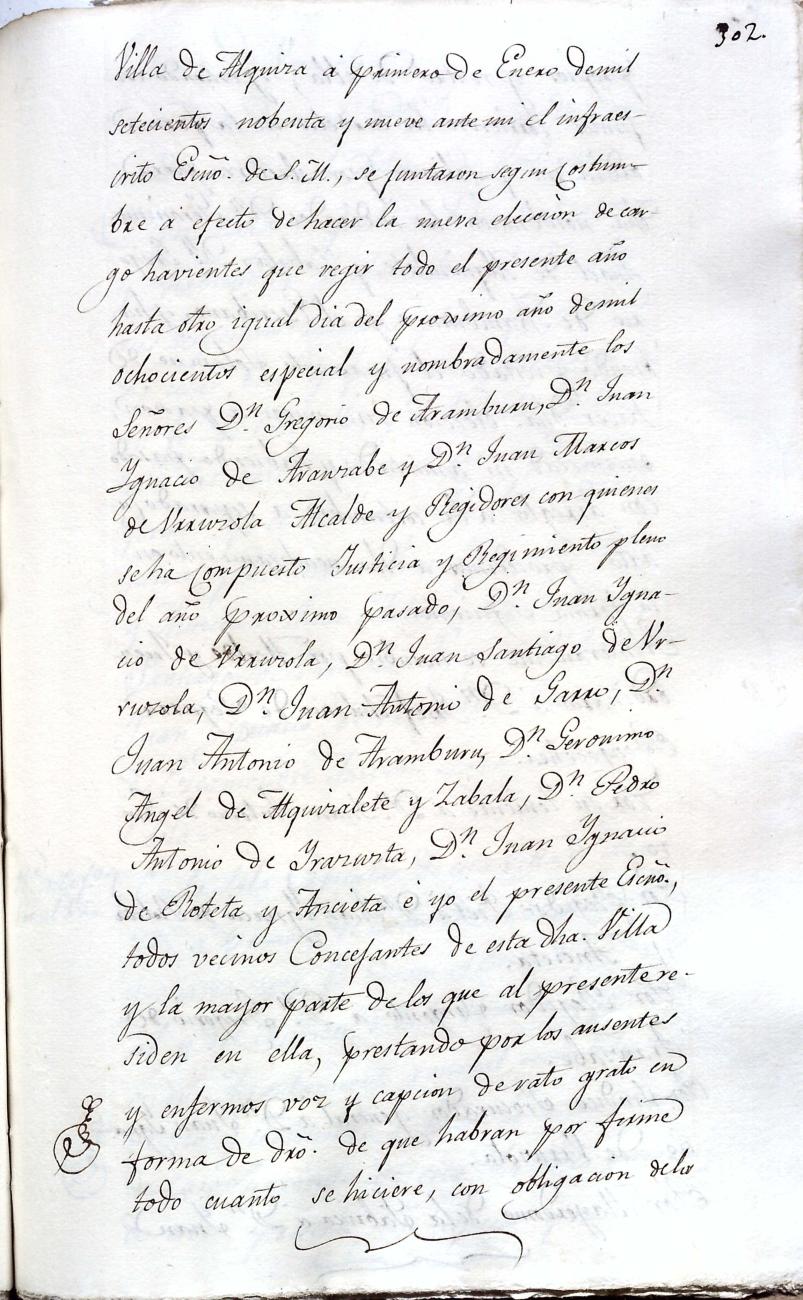 302.
Villa de Alquiza á primero de Enero demil
setecientos nobenta y nueve ante mi el infraes-
crito Escño. de S. M., se juntaron segun costum-
bre á efecto de hacer la nueva elección de car-
go havientes que regir todo el presente año
hasta otro igual dia del proximo año demil
ochocientos especial y nombradamente los
Señores Dn. Gregorio de Aramburu, Dn. Juan
Ygnacio de Aranzabe y Dn. Juan Marcos
de Urruzola Alcalde y Regidores con quienes
seha compuesto Justicia y Regimiento pleno
del año proximo pasado, Dn. Juan Ygna-
cio de Urruzola, Dn. Juan Santiago de Ur-
ruzola, Dn. Juan Antonio de Garro, Dn.
Juan Antonio de Aramburu, Dn. Geronimo
Angel de Alquizalete y Zabala, Dn. Pedro
Antonio de Yrazuzta, Dn. Juan Ygnacio
de Roteta y Ancieta é yo el presente Escño.,
todos vecinos Concejantes de esta dha. Villa
y la mayor parte delos que al presente re-
siden en ella, prestando por los ausentes
y enfermos voz y capcion de rato grato en
forma de dro. de que habran por firme
todo cuanto se hiciere, con obligacion delos